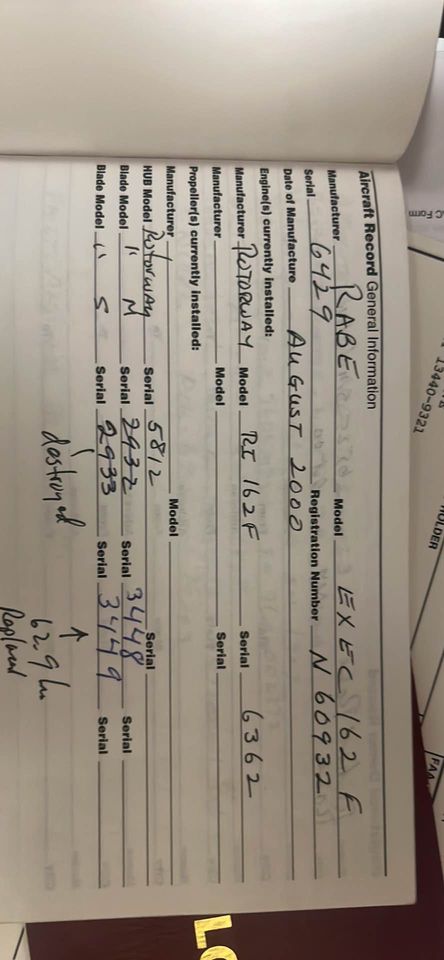 Aircraft Record General Information
Manufacturer RABE Model EXEC 162 F
Serial 6429 Registration Number N60932
Date of Manufacture AUGUST 2000
Engine(s) currently installed:
Manufacturer ROTORWAY Model RI 162F Serial 6362
Manufacturer Model Serial
Propeller(s) currently installed:
Manufacturer Model
HUB Model Rotorway Serial 5812 Serial
Blade Model " M Serial 2932 Serial 3448 Serial
Blade Model " S Serial 2933 Serial 3449 Serial
destroyed ↑ 62.9 hr
Replaced
C Form
13440-9321
HOLDER
FAA
LO